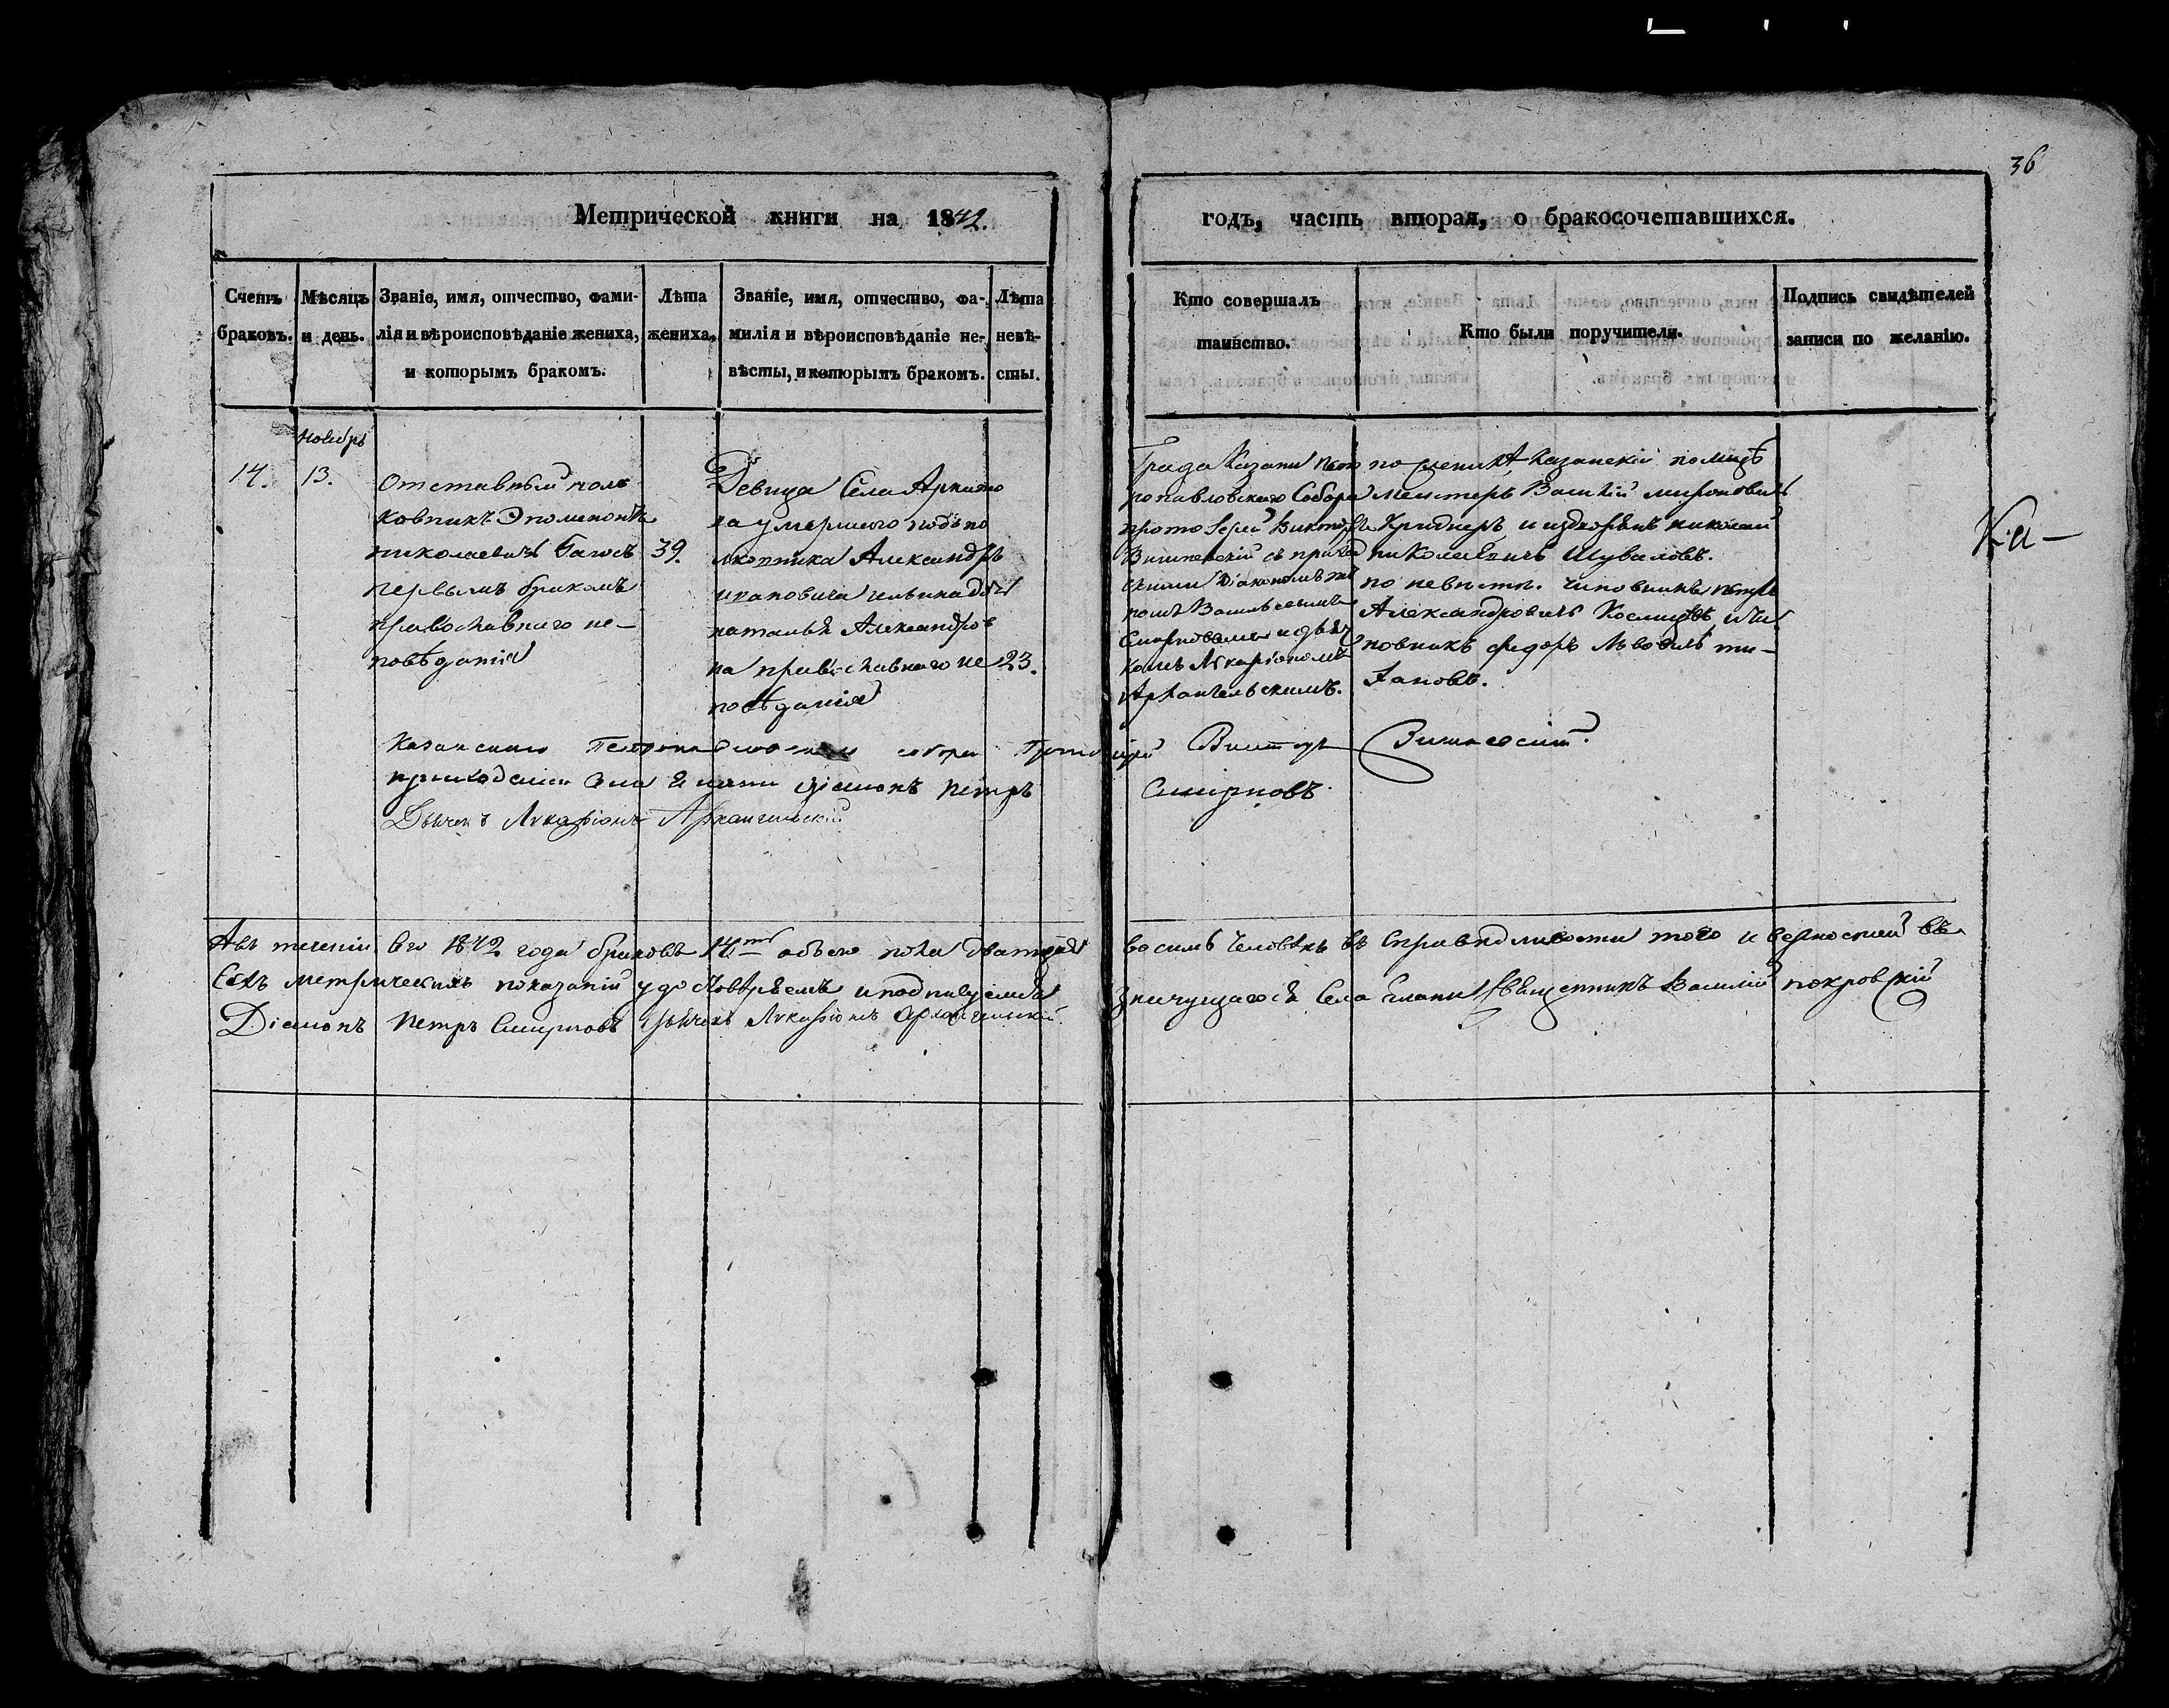 36
Метрической книги на 1842.
годъ, часть вторая, о бракосочетавшихся.
Счетъ браковъ.
Мѣсяцъ и день.
Званіе, имя, отчество, фами-
лія и вѣроисповѣданіе жениха,
и которымъ бракомъ.
Лѣта
жениха.
Званіе, имя, отчество, фа-
милія и вѣроисповѣданіе не-
вѣсты, и которымъ бракомъ.
Лѣта
невѣ-
сты.
Кто совершалъ
таинство.
Кто были поручители.
Подпись свидѣтелей
записи по желанію.
Ноябрь
14.
13.
Отставный пол
ковникъ
николаевичь
первымъ бракомъ
православнаго ис-
повѣданія
39.
Девица Села
умершаго подпо
лковника Александръ
ивановича дочь
наталья Александров
на православнаго ис
повѣданія
23.
Града Казани Пет
ропавловскаго Собора
протоіерей Викторъ
Вишневскій съ приход
скими діакономъ
Васильевымъ
Смирновымъ и дьяч
комъ
Архангельскимъ.
по женихѣ Казанскій полице
мейстеръ Василій мироновичь
и николай
николаевичь Шуваловъ.
по невѣсте. чиновникъ петръ
Александровичь и Чи
новникъ федоръ Львовичь
Ка-
Казанскаго Петропавловскаго собора Протоіерей Викторъ Вишневскій
приходскіи Села діаконъ Петръ Смирновъ
Дьячекъ Архангельскій
А въ теченіи сего 1842 года браковъ 14 обоего пола двадцать восимь человѣкъ въ справидливости того и верностіи въ
сехъ метрическихъ показаній удостоверяемъ и подписуемся Села Священникъ Василій покровскій
Діаконъ Петръ Смирновъ дьячекъ Архангельскій.